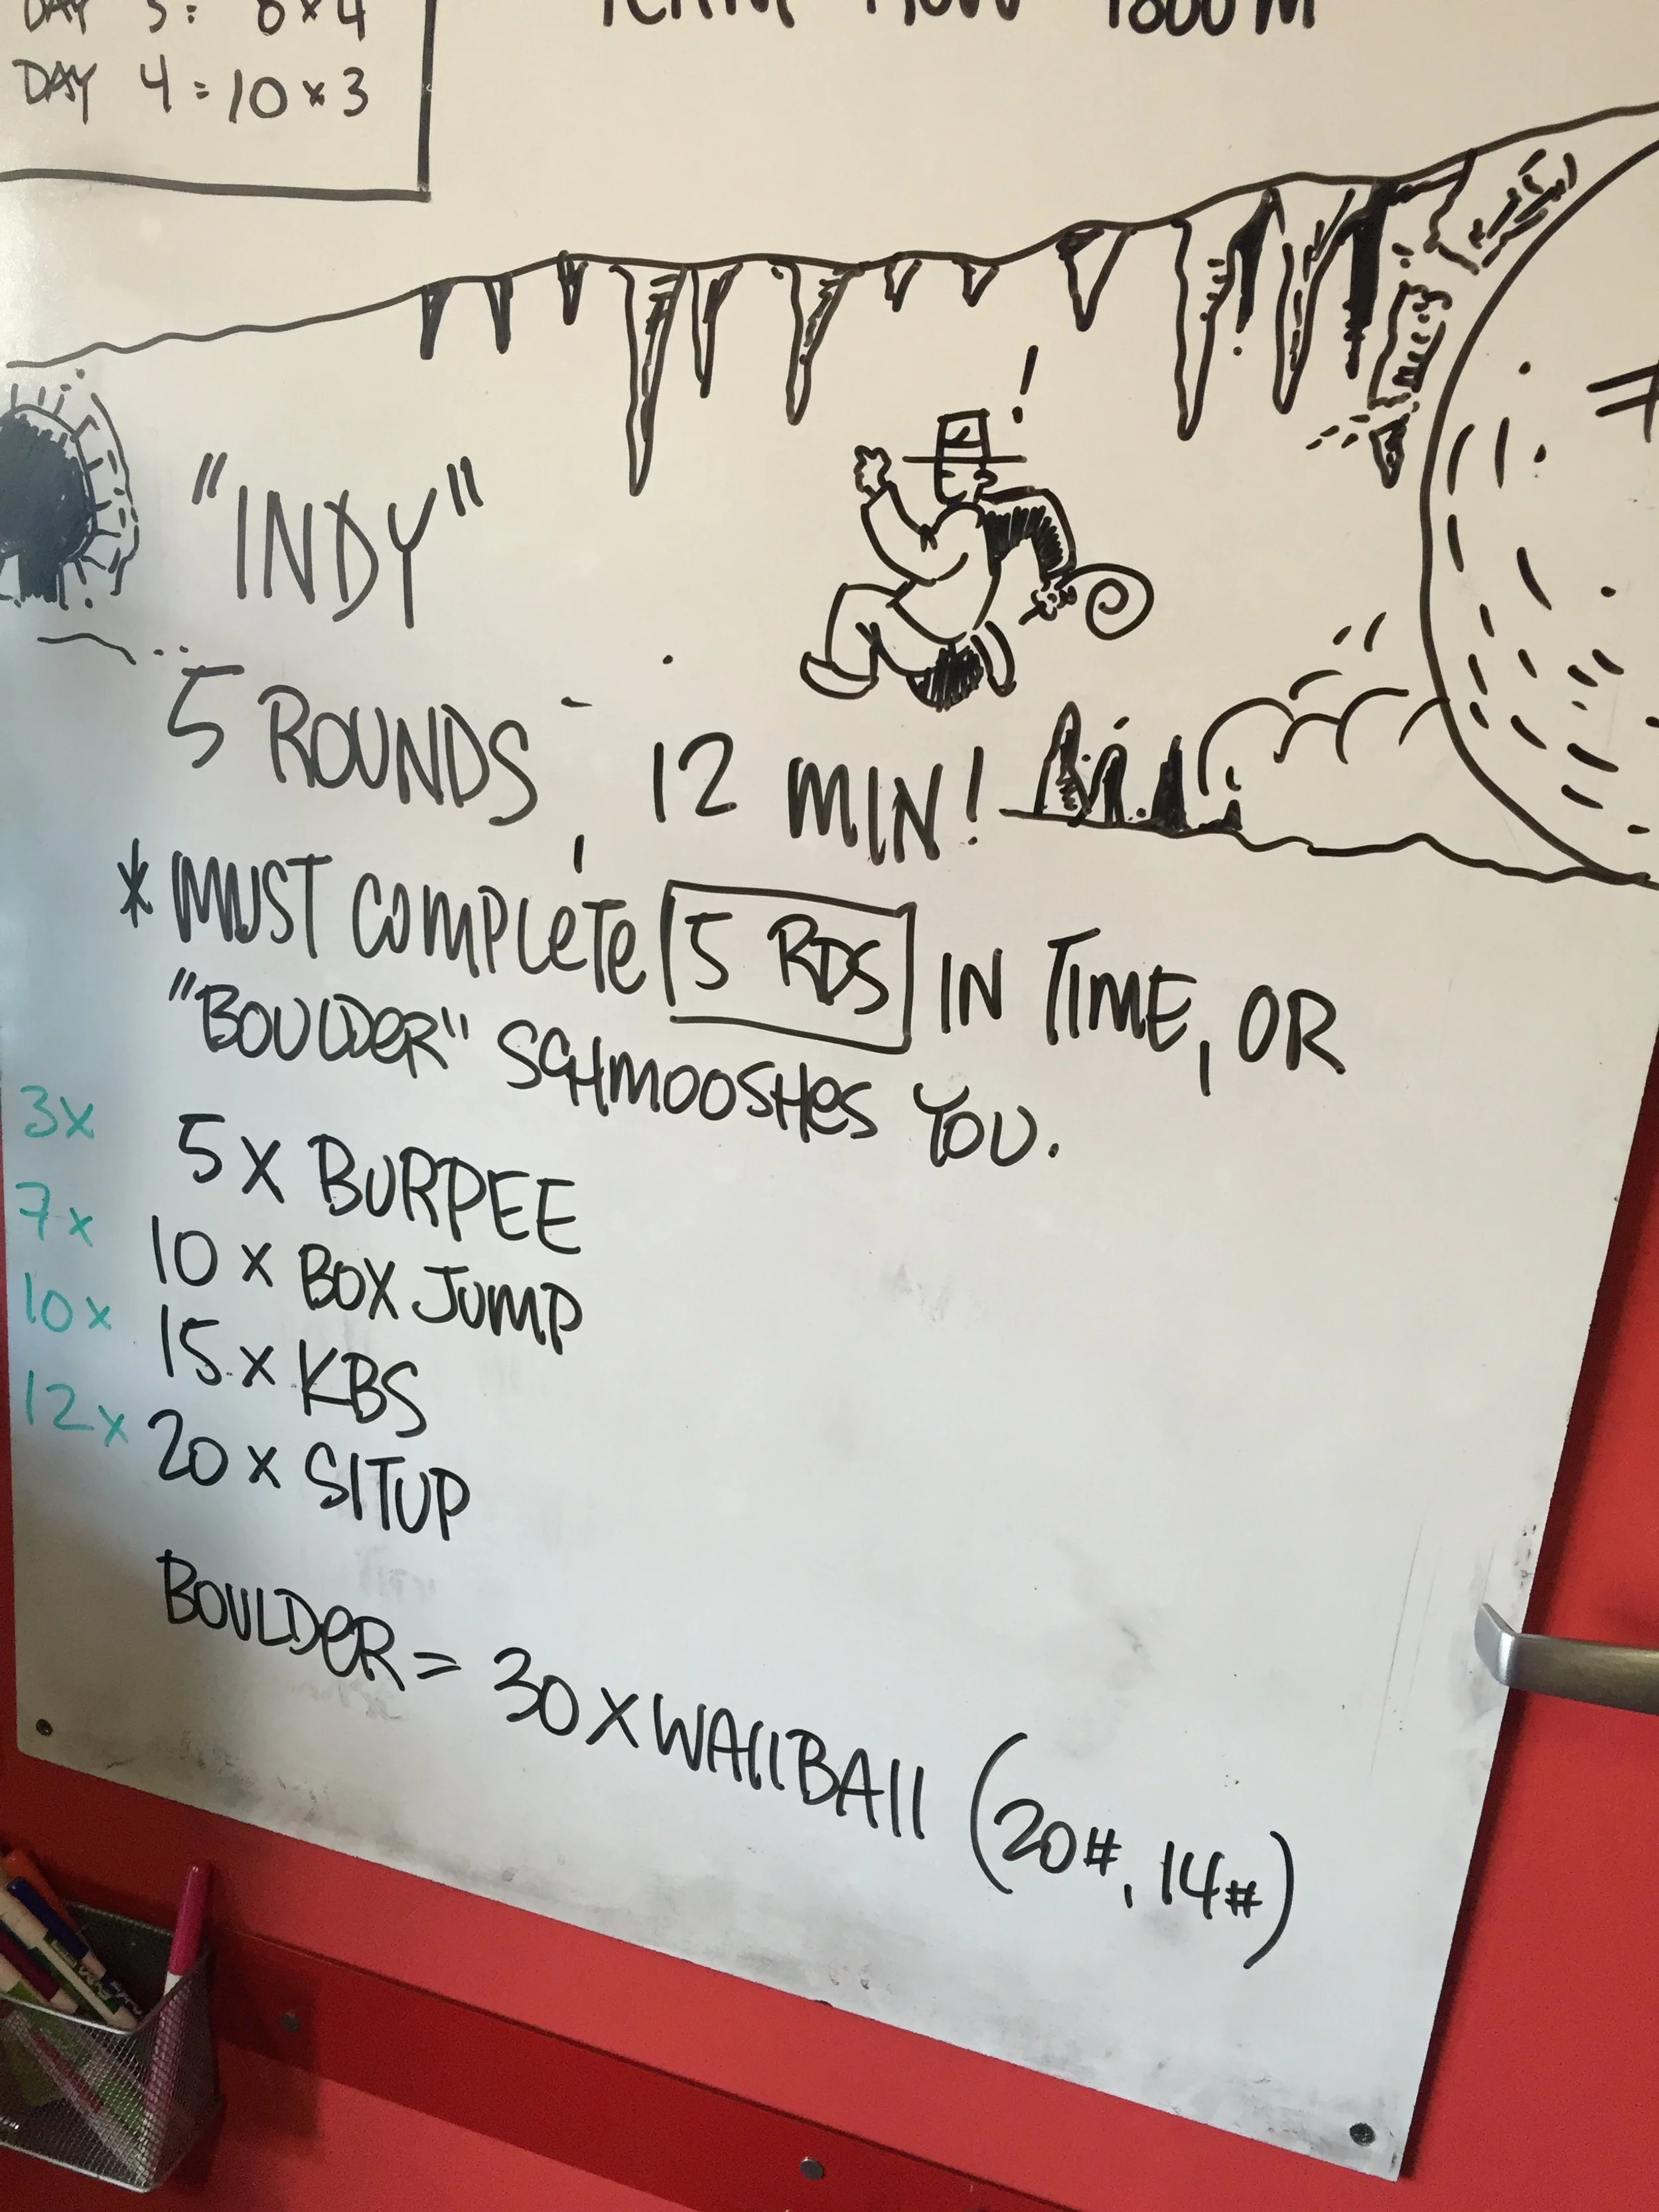 DAY 4 = 10 x 3
1800 M
!
"INDY"
5 ROUNDS, 12 MIN!
* MUST COMPLETE 5 RDS IN TIME, OR
"BOULDER" SCHMOOSHES YOU.
3x 5 X BURPEE
7x 10 X BOX JUMP
10x 15 X KBS
12x 20 X SITUP
BOULDER = 30 X WALLBALL (20#, 14#)